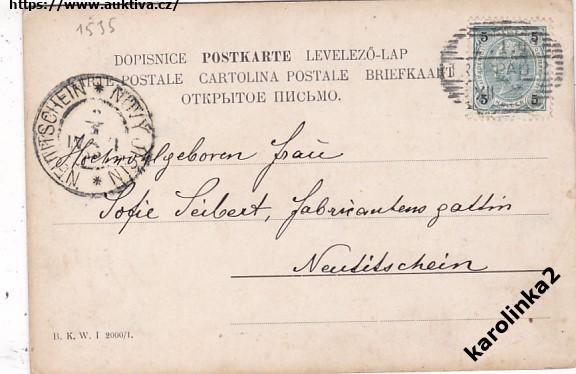 https://www.auktiva.cz/
1535
DOPISNICE POSTKARTE LEVELEZŐ-LAP
POSTALE CARTOLINA POSTALE BRIEFKAART
ОТКРЫТОЕ ПИСЬМО.
5 5
5 5
NEUTITSCHEIN * NOVÝ JIČÍN *
Hochwohlgeboren Frau
Sofie Seibert, Fabricantensgattin
Neutitschein
B. K. W. I 2000/1.
karolinka2